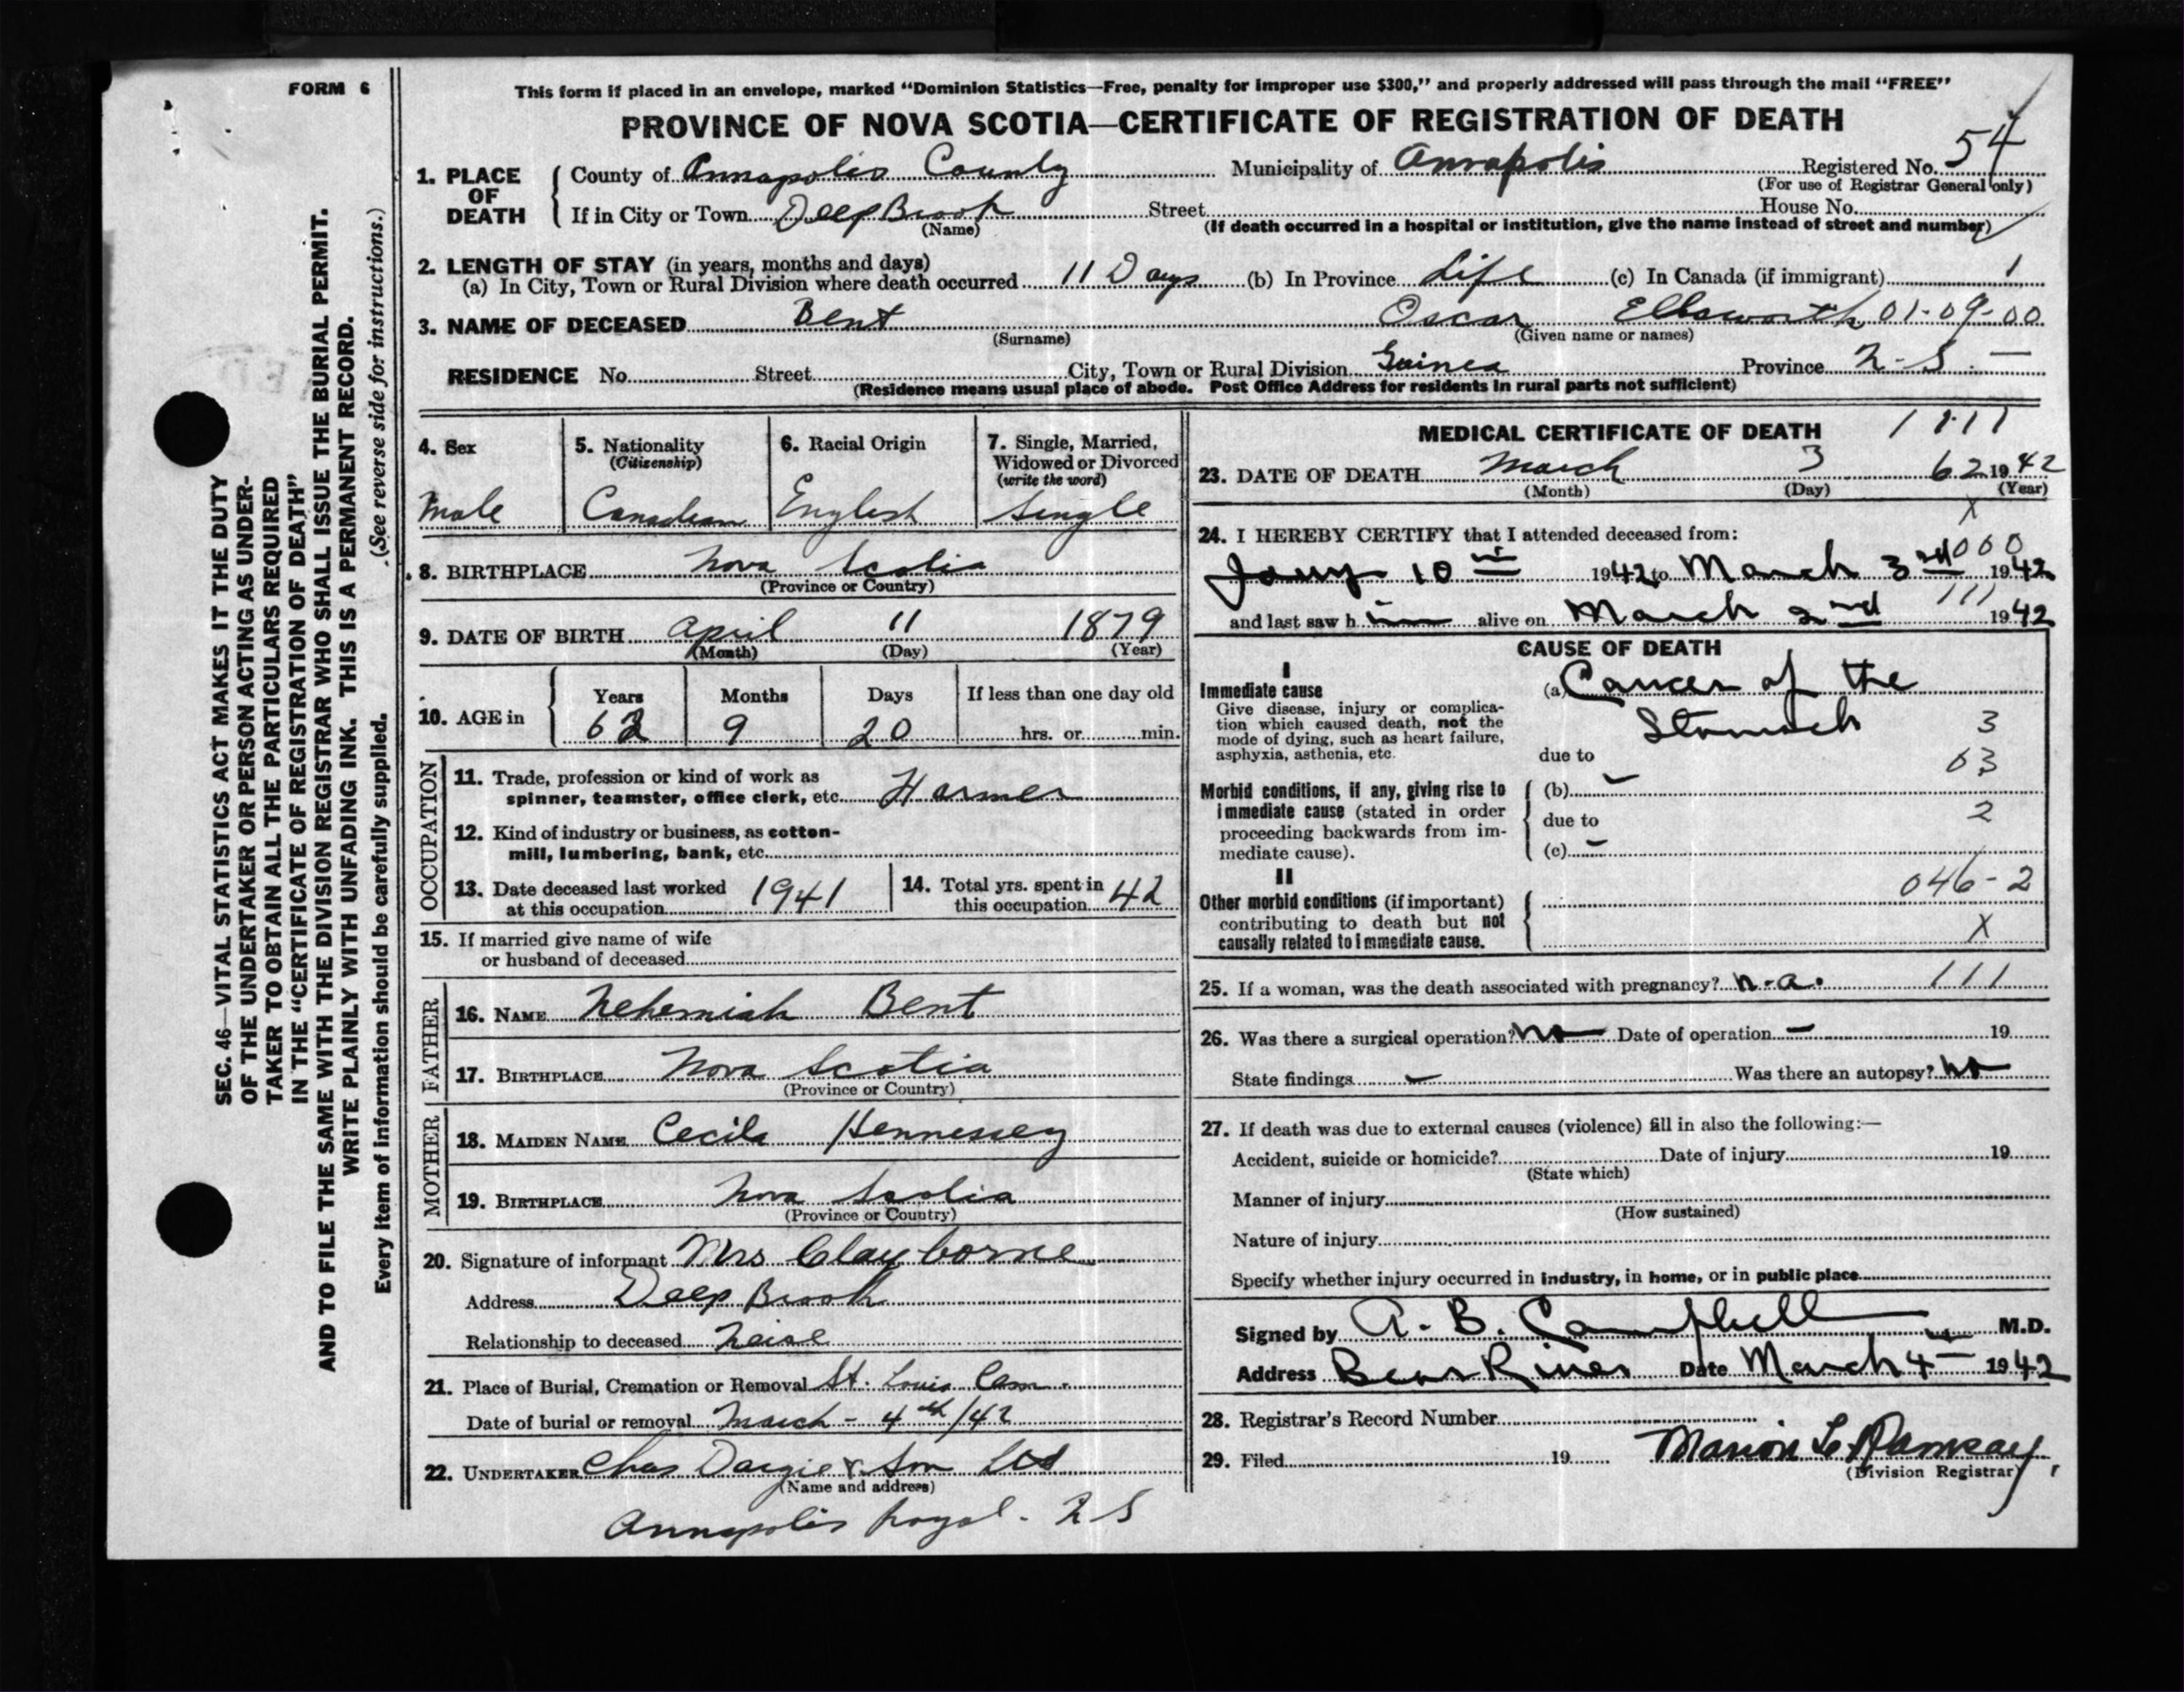 FORM 6
This form if placed in an envelope, marked "Dominion Statistics—Free, penalty for improper use $300," and properly addressed will pass through the mail "FREE"
PROVINCE OF NOVA SCOTIA—CERTIFICATE OF REGISTRATION OF DEATH
54
1. PLACE OF DEATH County of Annapolis County Municipality of Annapolis Registered No.
(For use of Registrar General only)
If in City or Town Deep Brook Street House No.
(Name) (If death occurred in a hospital or institution, give the name instead of street and number)
2. LENGTH OF STAY (in years, months and days)
(a) In City, Town or Rural Division where death occurred 11 Days (b) In Province Life (c) In Canada (if immigrant) 1
3. NAME OF DECEASED Bent Oscar Ellsworth 01-09-00
(Surname) (Given name or names)
RESIDENCE No. Street City, Town or Rural Division Guinea Province N-S. —
(Residence means usual place of abode. Post Office Address for residents in rural parts not sufficient)
4. Sex
Male
5. Nationality
(Citizenship)
Canadian
6. Racial Origin
English
7. Single, Married,
Widowed or Divorced
(write the word)
Single
8. BIRTHPLACE Nova Scotia
(Province or Country)
9. DATE OF BIRTH April 11 1879
(Month) (Day) (Year)
10. AGE in
Years Months Days If less than one day old
62 9 20 hrs. or min.
OCCUPATION
11. Trade, profession or kind of work as
spinner, teamster, office clerk, etc. Farmer
12. Kind of industry or business, as cotton-
mill, lumbering, bank, etc.
13. Date deceased last worked
at this occupation 1941
14. Total yrs. spent in
this occupation 42
15. If married give name of wife
or husband of deceased
FATHER
16. NAME Nehemiah Bent
17. BIRTHPLACE Nova Scotia
(Province or Country)
MOTHER
18. MAIDEN NAME Cecila Hennessey
19. BIRTHPLACE Nova Scotia
(Province or Country)
20. Signature of informant Mrs Clayborne
Address Deep Brook
Relationship to deceased Neise
21. Place of Burial, Cremation or Removal St. Louis Cem.
Date of burial or removal March - 4th/42
22. UNDERTAKER Chas Dargie & Son Ltd
(Name and address)
Annapolis Royal - N S
MEDICAL CERTIFICATE OF DEATH 1 1-11
23. DATE OF DEATH March 3 62 1942
(Month) (Day) (Year)
X
24. I HEREBY CERTIFY that I attended deceased from:
000
10 1942 to March 3rd 1942
111
and last saw him alive on March 2nd 1942
CAUSE OF DEATH
I
Immediate cause
Give disease, injury or complica-
tion which caused death, not the
mode of dying, such as heart failure,
asphyxia, asthenia, etc.
(a) Cancer of the
Stomach 3
due to 03
Morbid conditions, if any, giving rise to
immediate cause (stated in order
proceeding backwards from im-
mediate cause).
(b)
due to 2
(c)
II
Other morbid conditions (if important)
contributing to death but not
causally related to immediate cause.
046-2
X
25. If a woman, was the death associated with pregnancy? n.a. 111
26. Was there a surgical operation? No Date of operation — 19
State findings Was there an autopsy? No
27. If death was due to external causes (violence) fill in also the following:—
Accident, suicide or homicide? Date of injury 19
(State which)
Manner of injury
(How sustained)
Nature of injury
Specify whether injury occurred in industry, in home, or in public place
Signed by A. B. Campbell M.D.
Address Bear River Date March 4 1942
28. Registrar's Record Number
29. Filed 19 Marion Ramsay
(Division Registrar)
SEC. 46—VITAL STATISTICS ACT MAKES IT THE DUTY
OF THE UNDERTAKER OR PERSON ACTING AS UNDER-
TAKER TO OBTAIN ALL THE PARTICULARS REQUIRED
IN THE "CERTIFICATE OF REGISTRATION OF DEATH"
AND TO FILE THE SAME WITH THE DIVISION REGISTRAR WHO SHALL ISSUE THE BURIAL PERMIT.
WRITE PLAINLY WITH UNFADING INK. THIS IS A PERMANENT RECORD.
(See reverse side for instructions.)
Every item of information should be carefully supplied.